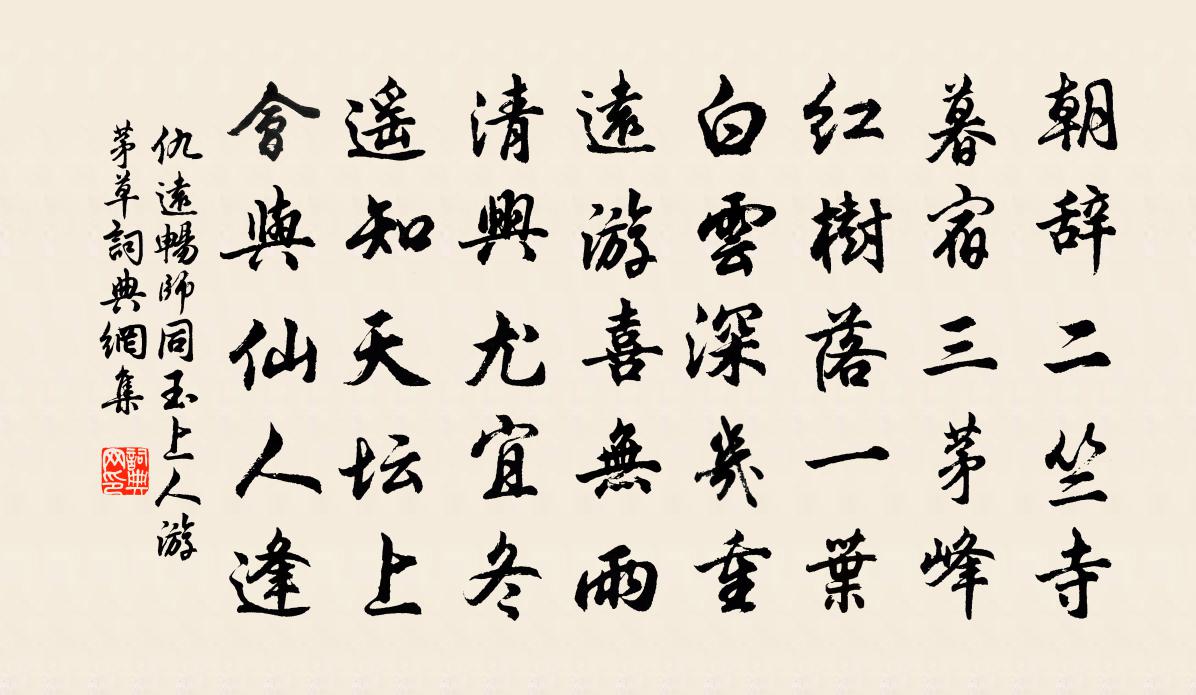 朝辞二竺寺
暮宿三茅峰
红樹落一葉
白雲深幾重
遠游喜無雨
清興尤宜冬
遥知天坛上
會與仙人逢
仇遠暢師同玉上人游
茅草詞典網集
詞典网印